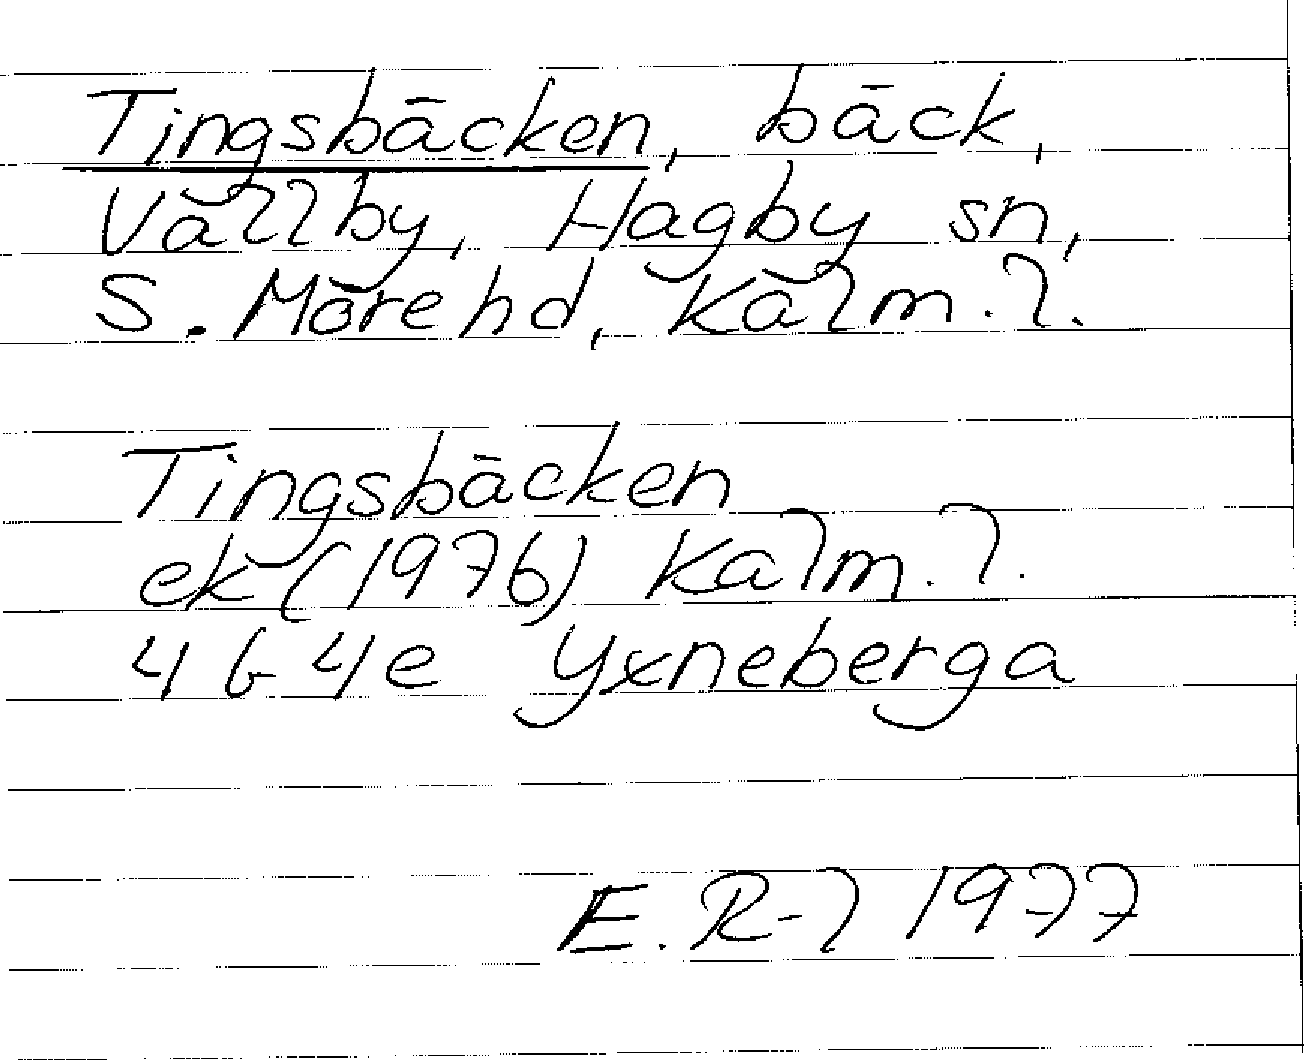 Tingsbäcken, bäck,
Vällby, Hagby sn,
S. Möre hd, Kalm. l.
Tingsbäcken
ek (1976) Kalm. l.
4 G 4e Yxneberga
E. R-l 1977